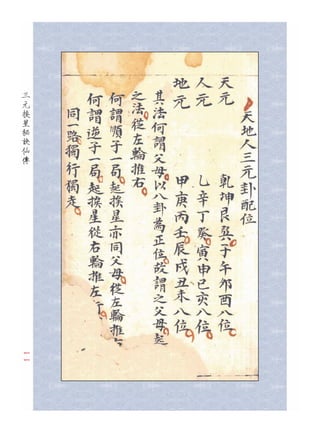 天地人三元卦配位
天元 乾坤艮巽子午卯酉八位
人元 乙辛丁癸寅申巳亥八位
地元 甲庚丙壬辰戌丑未八位
其法何謂父母以八卦為正位故謂之父母起
之法從左輪推右
何謂順子一局起挨星亦同父母從左輪推右
何謂逆子一局起挨星從右輪推左
同一路獨行獨走
三元挨星秘訣仙傳
一一